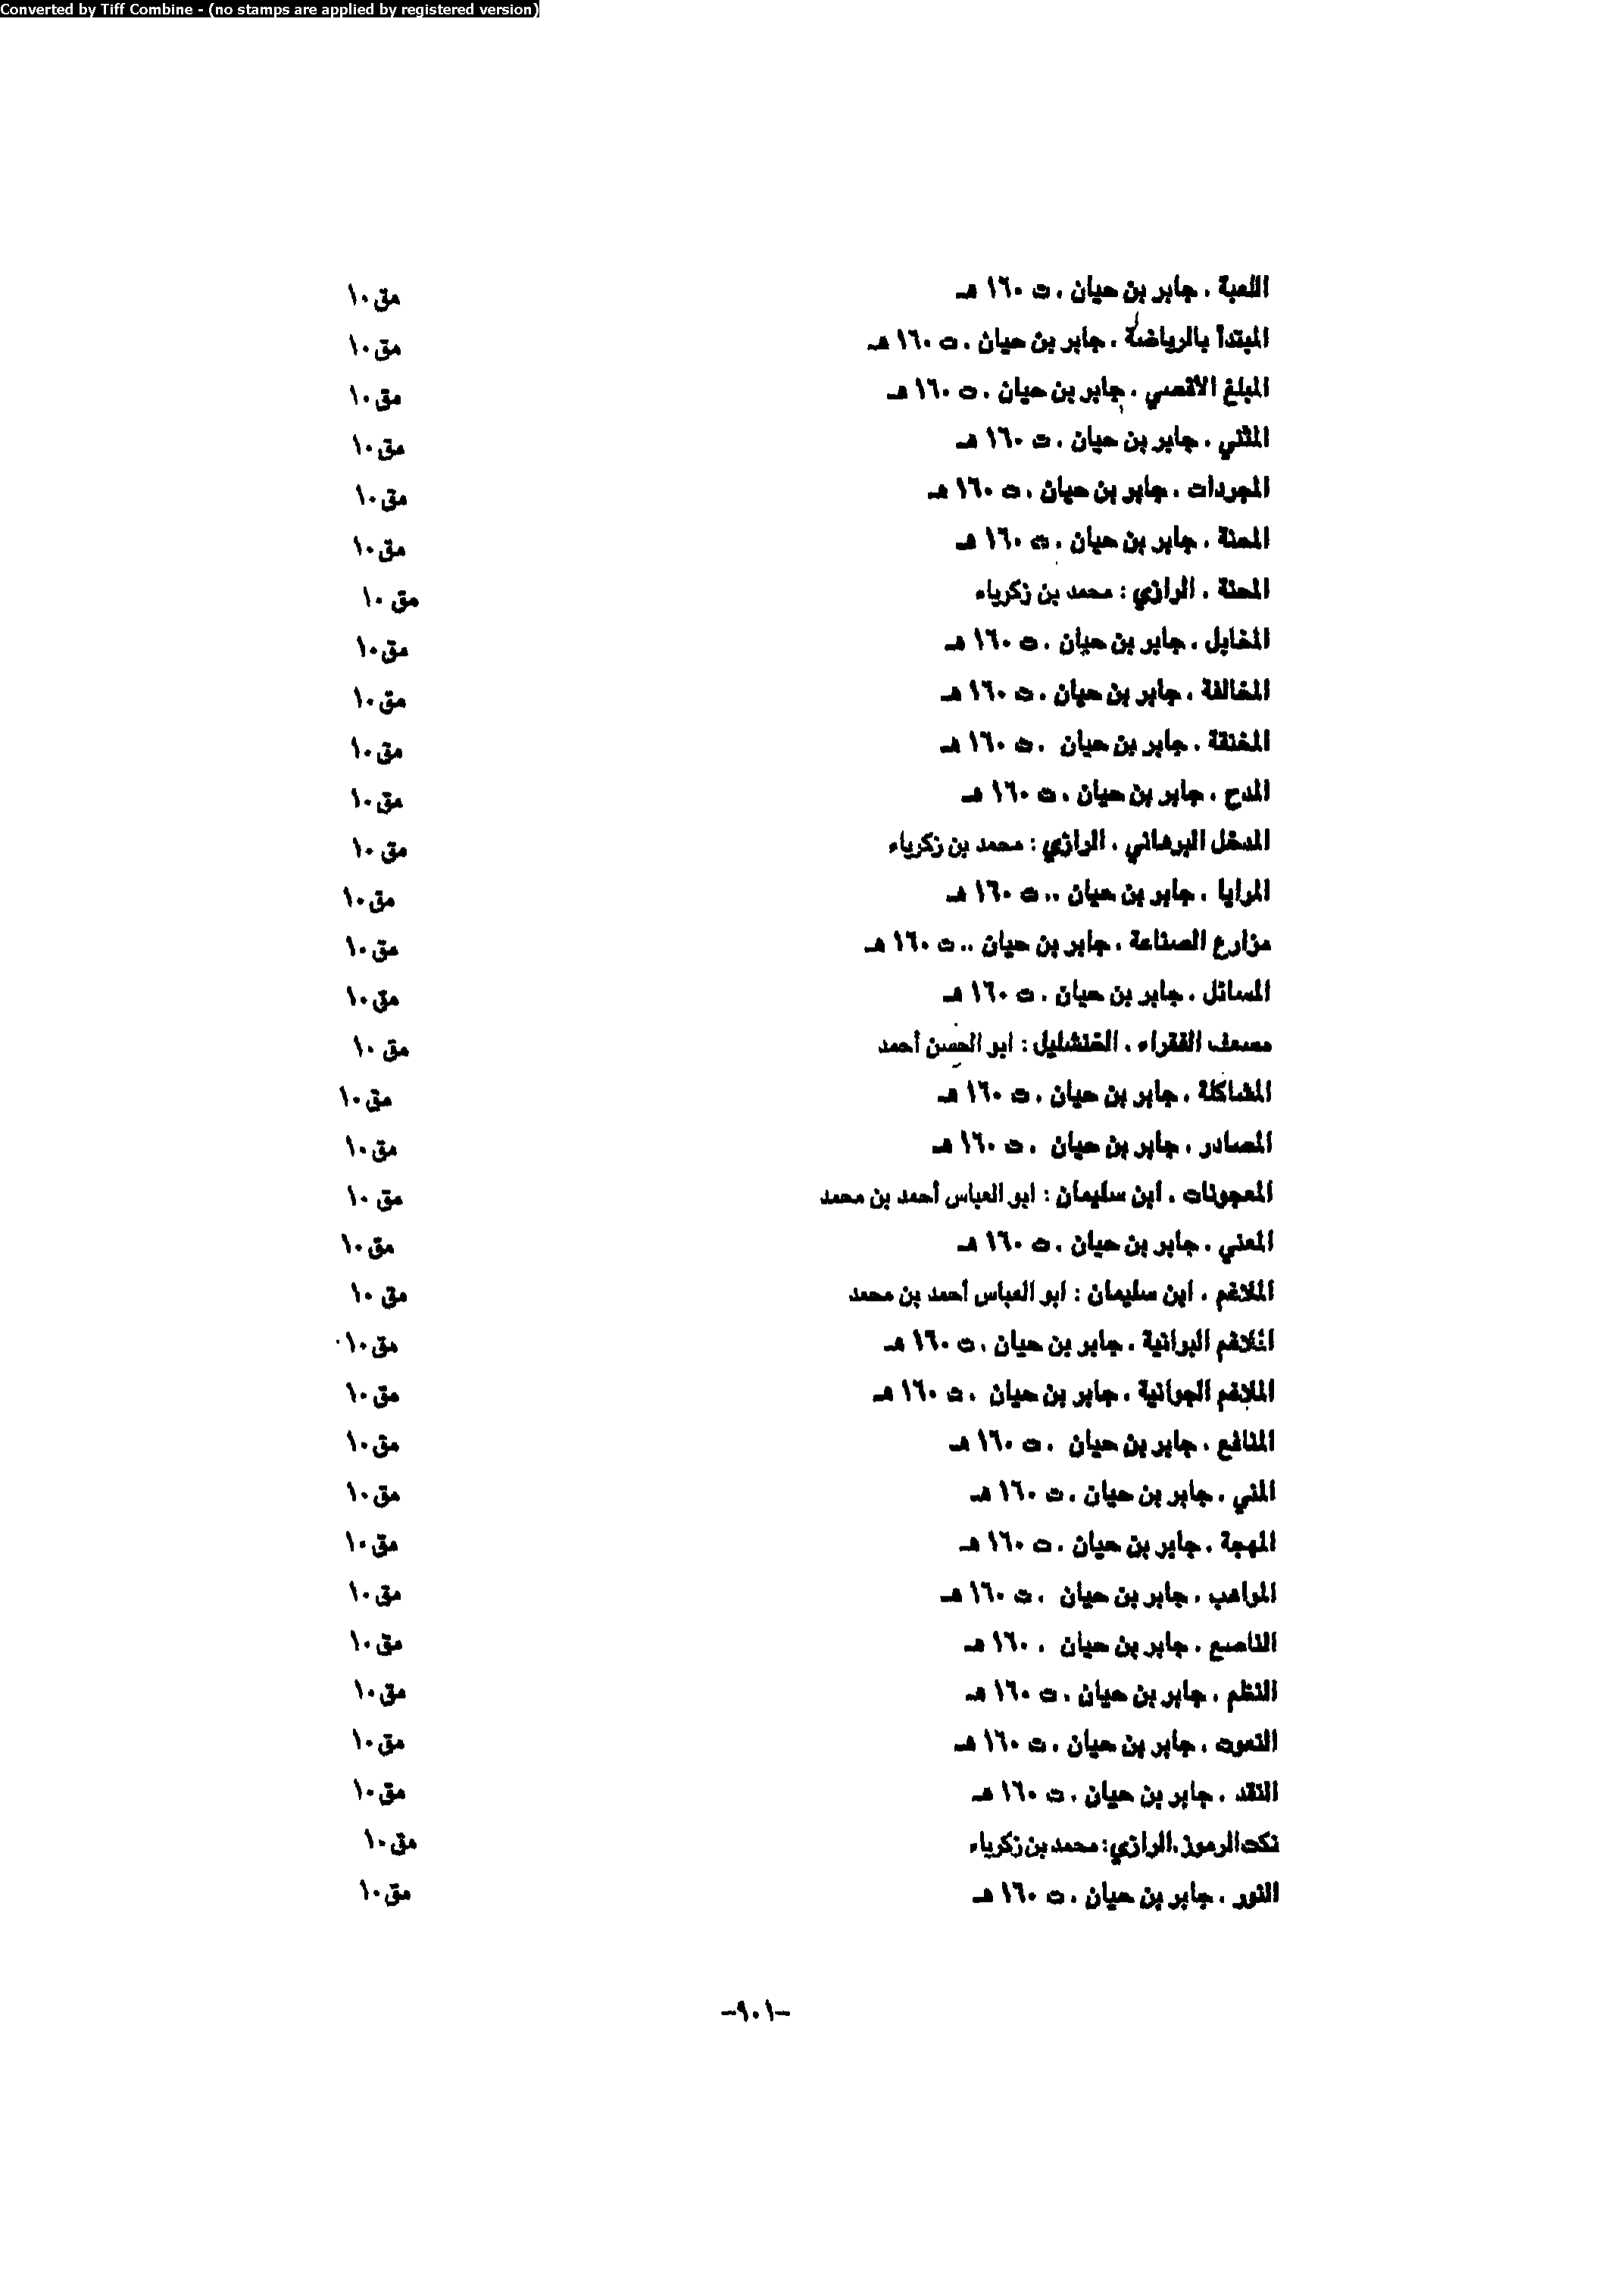 Converted by Tiff Combine - (no stamps are applied by registered version)
اللعبة . جابر بن حيان . ت ١٦٠ هـ مق ١٠
المبتدأ بالرياضة . جابر بن حيان . ت ١٦٠ هـ مق ١٠
المبلغ الأقصي . جابر بن حيان . ت ١٦٠ هـ مق ١٠
المثني . جابر بن حيان . ت ١٦٠ هـ مق ١٠
المجردات . جابر بن حيان . ت ١٦٠ هـ مق ١٠
المحنة . جابر بن حيان . ت ١٦٠ هـ مق ١٠
المحنة . الرازي : محمد بن زكرياء مق ١٠
المخايل . جابر بن حيان . ت ١٦٠ هـ مق ١٠
المخالفة . جابر بن حيان . ت ١٦٠ هـ مق ١٠
المخنقة . جابر بن حيان . ت ١٦٠ هـ مق ١٠
المدح . جابر بن حيان . ت ١٦٠ هـ مق ١٠
المدخل البرهاني . الرازي : محمد بن زكرياء مق ١٠
المرايا . جابر بن حيان .. ت ١٦٠ هـ مق ١٠
مزارع الصناعة . جابر بن حيان .. ت ١٦٠ هـ مق ١٠
المسائل . جابر بن حيان . ت ١٦٠ هـ مق ١٠
مسعف الفقراء . الخنشليل : ابو الحسن أحمد مق ١٠
المشاكلة . جابر بن حيان . ت ١٦٠ هـ مق ١٠
المصادر . جابر بن حيان . ت ١٦٠ هـ مق ١٠
المعجونات . ابن سليمان : ابو العباس أحمد بن محمد مق ١٠
المعني . جابر بن حيان . ت ١٦٠ هـ مق ١٠
الملاغم . ابن سليمان : ابو العباس أحمد بن محمد مق ١٠
الملاغم البرانية . جابر بن حيان . ت ١٦٠ هـ مق ١٠
الملاغم الجوانية . جابر بن حيان . ت ١٦٠ هـ مق ١٠
المنافع . جابر بن حيان . ت ١٦٠ هـ مق ١٠
المني . جابر بن حيان . ت ١٦٠ هـ مق ١٠
المهجة . جابر بن حيان . ت ١٦٠ هـ مق ١٠
المواهب . جابر بن حيان . ت ١٦٠ هـ مق ١٠
الناصع . جابر بن حيان . ١٦٠ هـ مق ١٠
النظم . جابر بن حيان . ت ١٦٠ هـ مق ١٠
النعوت . جابر بن حيان . ت ١٦٠ هـ مق ١٠
النقد . جابر بن حيان . ت ١٦٠ هـ مق ١٠
نكت الرموز . الرازي : محمد بن زكرياء مق ١٠
النور . جابر بن حيان . ت ١٦٠ هـ مق ١٠
-٩٠١-